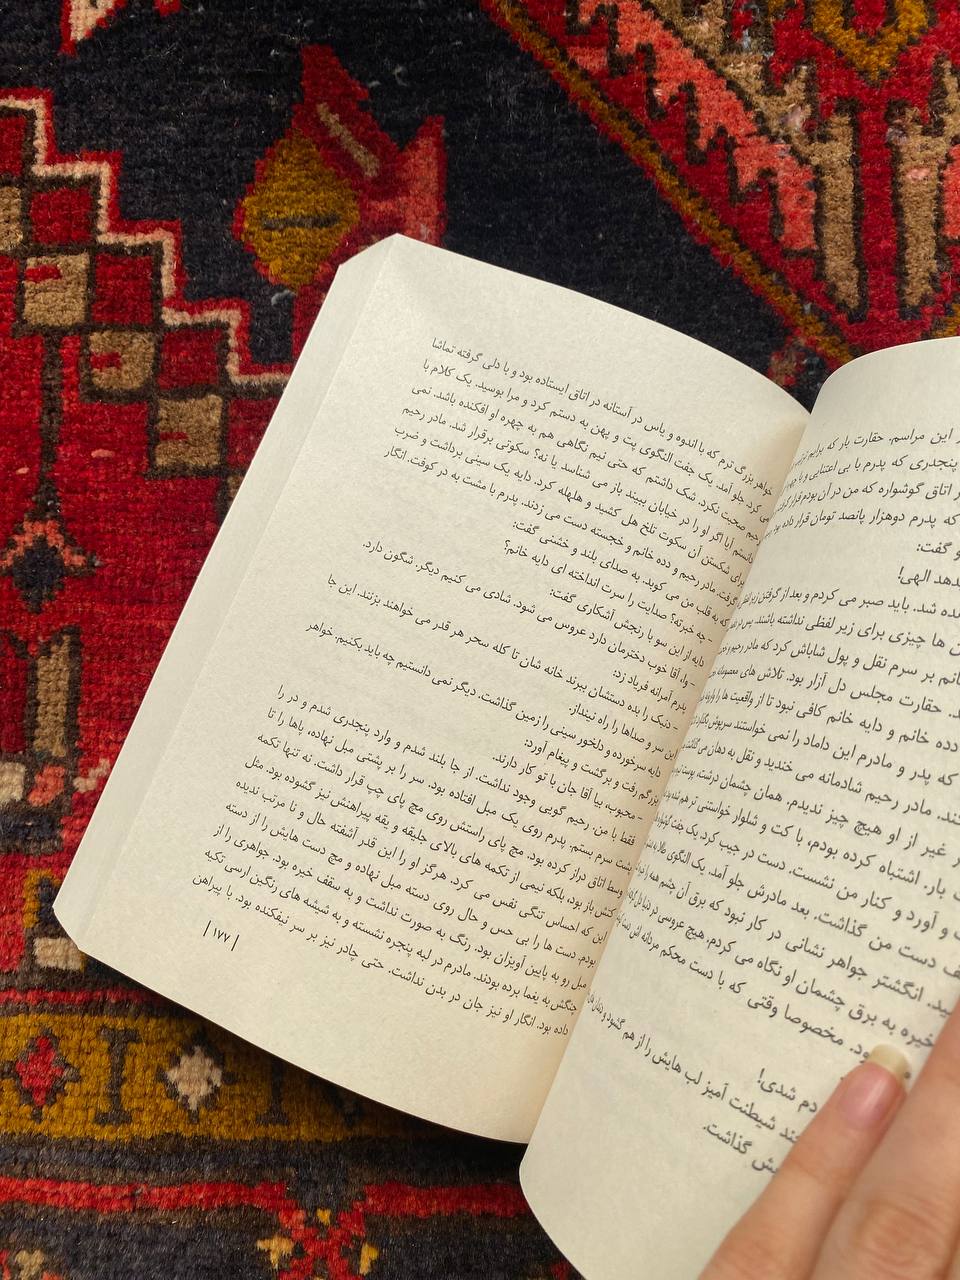 این مراسم. حقارت بار که برایم
پنجدری که پدرم با بی اعتنایی و با
اتاق گوشواره که من در آن بودم قرار
که پدرم دوهزار پانصد تومان قرار داده بود
و گفت:
دهد الهی!
شد. باید صبر می کردم و بعد از گرفتن زیر لفظی
ها چیزی برای زیر لفظی نداشته باشند. پس در
خانم بر سرم نقل و پول شاباش کرد که مادر رحیم و
حقارت مجلس دل آزار بود. تلاش های معصومانه
دده خانم و دایه خانم کافی نبود تا از واقعیت ها
که پدر و مادرم این داماد را نمی خواستند
مادر رحیم شادمانه می خندید و نقل به دهان می گذاشت
غیر از او هیچ چیز ندیدم. همان چشمان درشت، پوست
بار. اشتباه کرده بودم، با کت و شلوار خواستنی تر هم شده بود
و آورد و کنار من نشست. دست در جیب کرد. یک جفت
دست من گذاشت. بعد مادرش جلو آمد. یک النگوی طلا به
انگشتر جواهر نشانی در کار نبود که برق آن چشم همه را
خیره به برق چشمان او نگاه می کردم. هیچ عروسی در دنیا
بود. مخصوصا وقتی که با دست محکم مردانه اش
دم شدی!
شیطنت آمیز لب هایش را از هم گشود و
گذاشت.
خواهر بزرگ ترم که با اندوه و یاس در آستانه در اتاق ایستاده بود و با دلی گرفته تماشا
می کرد. جلو آمد. یک جفت النگوی پت و پهن به دستم کرد و مرا بوسید. یک کلام با
رحیم صحبت نکرد. شک داشتم که حتی نیم نگاهی هم به چهره او افکنده باشد. نمی
دانستم آیا اگر او را در خیابان ببیند باز می شناسد یا نه؟ سکوتی برقرار شد. مادر رحیم
برای شکستن آن سکوت تلخ هل کشید و هلهله کرد. دایه یک سینی برداشت و ضرب
گرفت. مادر رحیم و دده خانم و خجسته دست می زدند. پدرم با مشت به در کوفت. انگار
که به قلب من می کوبد. به صدای بلند و خشنی گفت:
- چه خبرته؟ صدایت را سرت انداخته ای دایه خانم؟
دایه از این سو با رنجش آشکاری گفت:
- وا، آقا خوب دخترمان دارد عروس می شود. شادی می کنیم دیگر. شگون دارد.
پدرم آمرانه فریاد زد:
- دنبک را بده دستشان ببرند خانه شان تا کله سحر هر قدر می خواهند بزنند. این جا
این سر و صداها را راه نینداز.
دایه سرخورده و دلخور سینی را زمین گذاشت. دیگر نمی دانستیم چه باید بکنیم. خواهر
بزرگم رفت و برگشت و پیغام آورد:
- محبوب، بیا آقا جان با تو کار دارند.
فقط با من. رحیم گویی وجود نداشت. از جا بلند شدم و وارد پنجدری شدم و در را
پشت سرم بستم. پدرم روی یک مبل افتاده بود. سر را بر پشتی مبل نهاده، پاها را تا
وسط اتاق دراز کرده بود. مچ پای راستش روی مچ پای چپ قرار داشت. نه تنها تکمه
کتش باز بود، بلکه نیمی از تکمه های بالای جلیقه و یقه پیراهنش نیز گشوده بود. مثل
این که احساس تنگی نفس می کرد. هرگز او را این قدر آشفته حال و نا مرتب ندیده
بودم. دست ها را بی حس و حال روی دسته مبل نهاده و مچ دست هایش را از دسته
مبل رو به پایین آویزان بود. رنگ به صورت نداشت و به سقف خیره بود. جواهری را از
چنگش به یغما برده بودند. مادرم در لبه پنجره نشسته و به شیشه های رنگین ارسی تکیه
داده بود. انگار او نیز جان در بدن نداشت. حتی چادر نیز بر سر نیفکنده بود. با پیراهن
| ۱۷۷ |